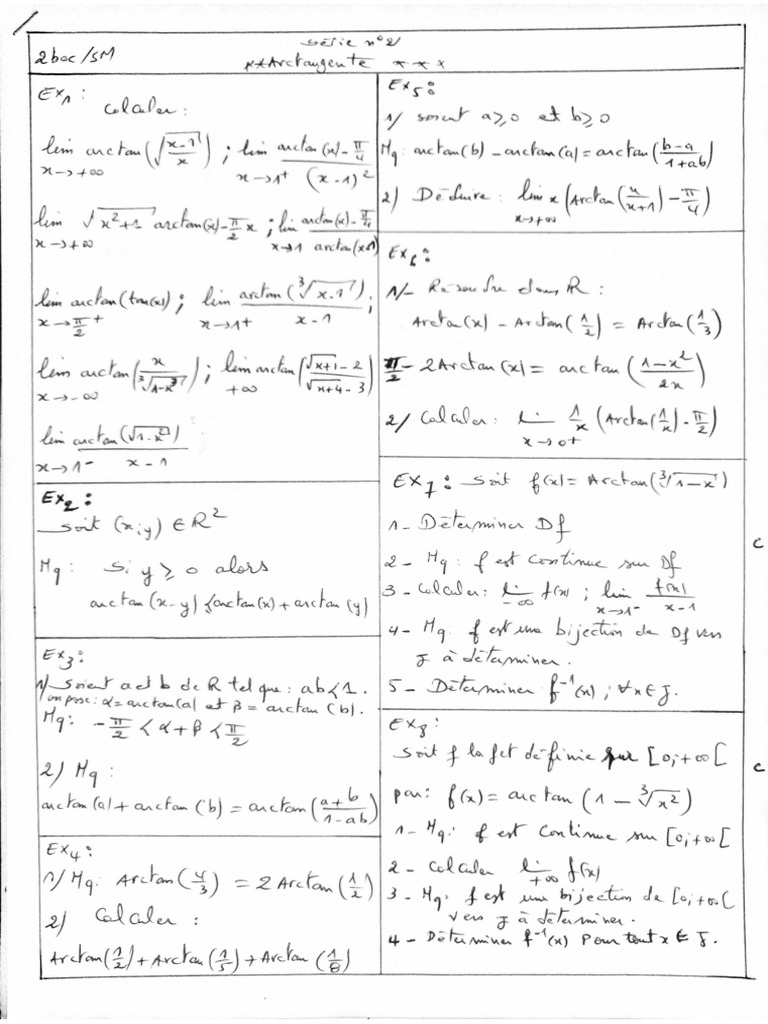 Série n°2
2bac/SM
**Arctangente ***
Ex1:
Calculer:
lim x→+∞ arctan(√((x-1)/x)) ; lim x→1+ (arctan(x)-π/4)/(x-1)²
lim x→+∞ √(x²+1) arctan(x)-π/2 x ; lim x→1 (arctan(x)-π/4)/arctan(x-1)
lim x→π/2+ arctan(tan(x)) ; lim x→1+ arctan(∛(x-1))/(x-1) ;
lim x→-∞ arctan(x/∛(1-x³)) ; lim +∞ arctan((√(x+1)-2)/(√(x+4)-3))
lim x→1- arctan(√(1-x²))/(x-1)
Ex2:
Soit (x;y) ∈ R²
Mq: Si y ≥ 0 alors
arctan(x-y) < arctan(x) + arctan(y)
Ex3:
1/ Soient a et b de R tel que: ab<1.
on pose: α=arctan(a) et β=arctan(b).
Mq: -π/2 < α+β < π/2
2) Mq:
arctan(a)+arctan(b) = arctan((a+b)/(1-ab))
Ex4:
1) Mq: Arctan(4/3) = 2Arctan(1/2)
2) Calculer:
Arctan(1/2)+Arctan(1/5)+Arctan(1/8)
Ex5:
1/ soient a≥0 et b≥0
Mq: arctan(b)-arctan(a)=arctan((b-a)/(1+ab))
2) Déduire: lim x→+∞ x(Arctan(x/(x+1))-π/4)
Ex6:
1/- Résoudre dans R:
Arctan(x) - Arctan(1/2) = Arctan(1/3)
π/2 - 2Arctan(x) = arctan((1-x²)/2x)
2/ Calculer: lim x→0+ 1/x (Arctan(1/x)-π/2)
EX7: Soit f(x)= Arctan(∛(1-x))
1- Déterminer Df
2- Mq: f est continue sur Df
3- Calculer: lim -∞ f(x) ; lim x→1- f(x)/(x-1)
4- Mq: f est une bijection de Df vers
J à déterminer.
5- Déterminer f⁻¹(x) ; ∀x∈J.
EX8:
Soit f la fct définie sur [0;+∞[
par: f(x)=arctan(1-∛(x²))
1- Mq: f est continue sur [0;+∞[
2- Calculer lim +∞ f(x)
3- Mq: f est une bijection de [0;+∞[
vers J à déterminer.
4- Déterminer f⁻¹(x) pour tout x∈J.
c
c